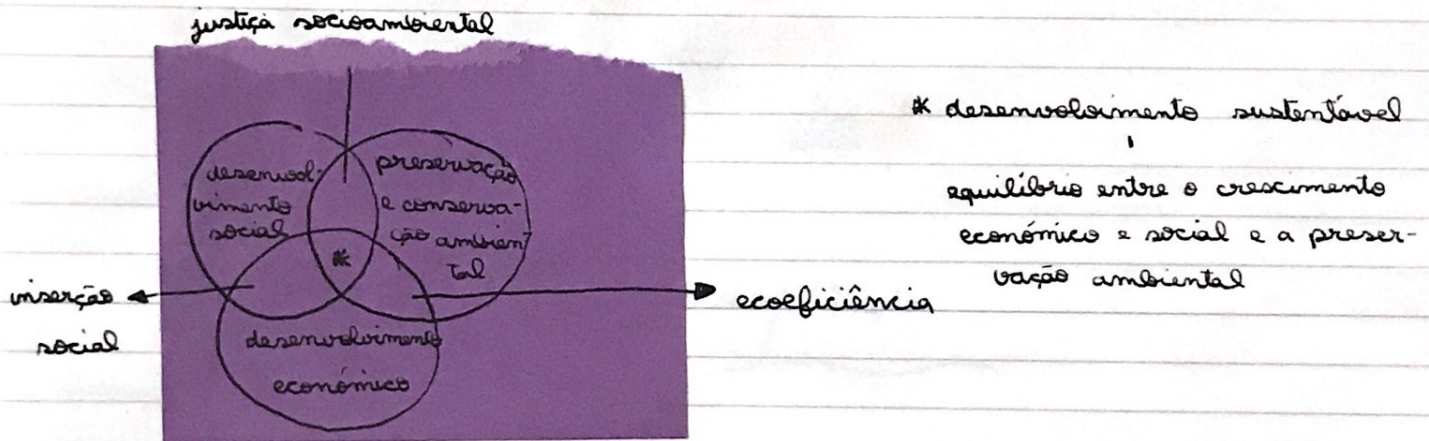 justiça socioambiental
desenvol-
vimento
social
preservação
e conserva-
ção ambien
tal
*
inserção
social
ecoeficiência
desenvolvimento
económico
* desenvolvimento sustentável
equilíbrio entre o crescimento
económico e social e a preser-
vação ambiental